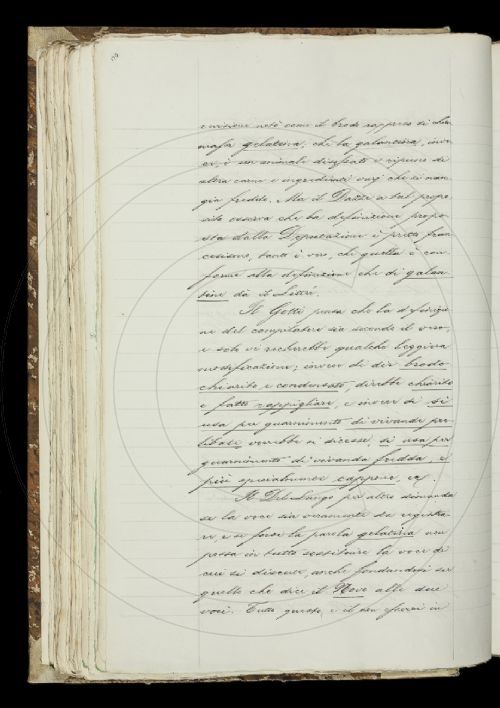 e vizione notò come il brodo rappreso si chia-
masse gelatina, che la galantina, inve-
ce, è un animale disossato e ripieno di
altra carne e ingredienti vari che si man-
gia freddo. Ma il Dazzi a tal propo-
sito osserva che la definizione propo-
sta dalla Deputazione è pretta fran-
cesismo, tanto è vero, che quella è con-
forme alla definizione che di galan-
tine dà il Littré.
Il Gotti pensa che la definizio-
ne del compilatore sia secondo il vero,
e solo vi recherebbe qualche leggiera
modificazione; invece di dir brodo
chiarito e condensato, direbbe chiarito
e fatto rappigliare, e invece di si
usa per guarnimento di vivande pre-
libate vorrebbe si dicesse, si usa per
guarnimento di vivanda fredda, e
più specialmente cappone, ec.
Il Del Lungo per altro domanda
se la voce sia veramente da registra-
re, e se forse la parola gelatina non
possa in tutto sostituire la voce di
cui si discute, anche fondandosi su
quello che dice il Nove alle due
voci. Tutto questo, e il non esserci in